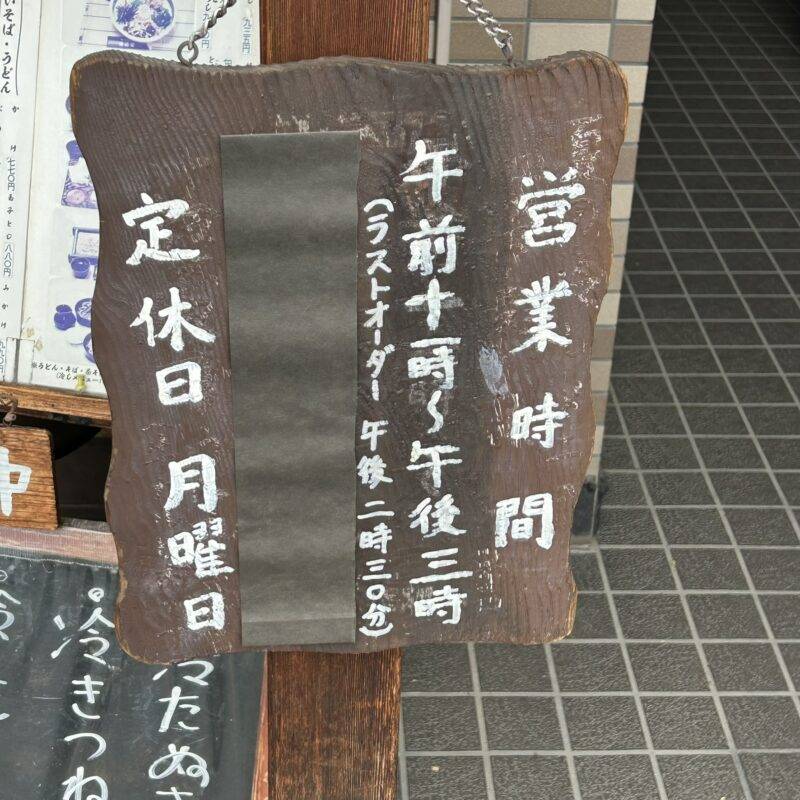 営業時間
午前十一時～午後三時
(ラストオーダー 午後二時三〇分)
定休日 月曜日
いそば・うどん
かけ 七七〇円
※うどん・そば・
冷たぬき
冷きつね